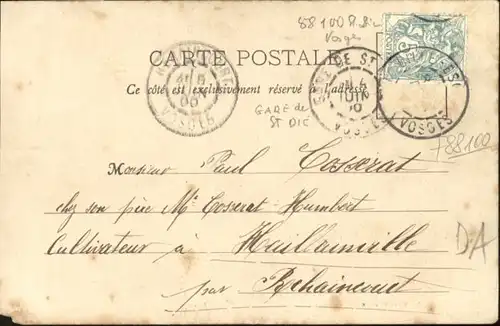 88100 St Die
Vosges
CARTE POSTALE
Ce côté est exclusivement réservé à l'adresse
GARE DE ST
JUIN
VOSGES
VOSGES
GARE de
St DIE
788100
Monsieur Paul Cosserat
chez son père Mr Cosserat Humbert
Cultivateur à Haillainville
par Rehaincourt
DA